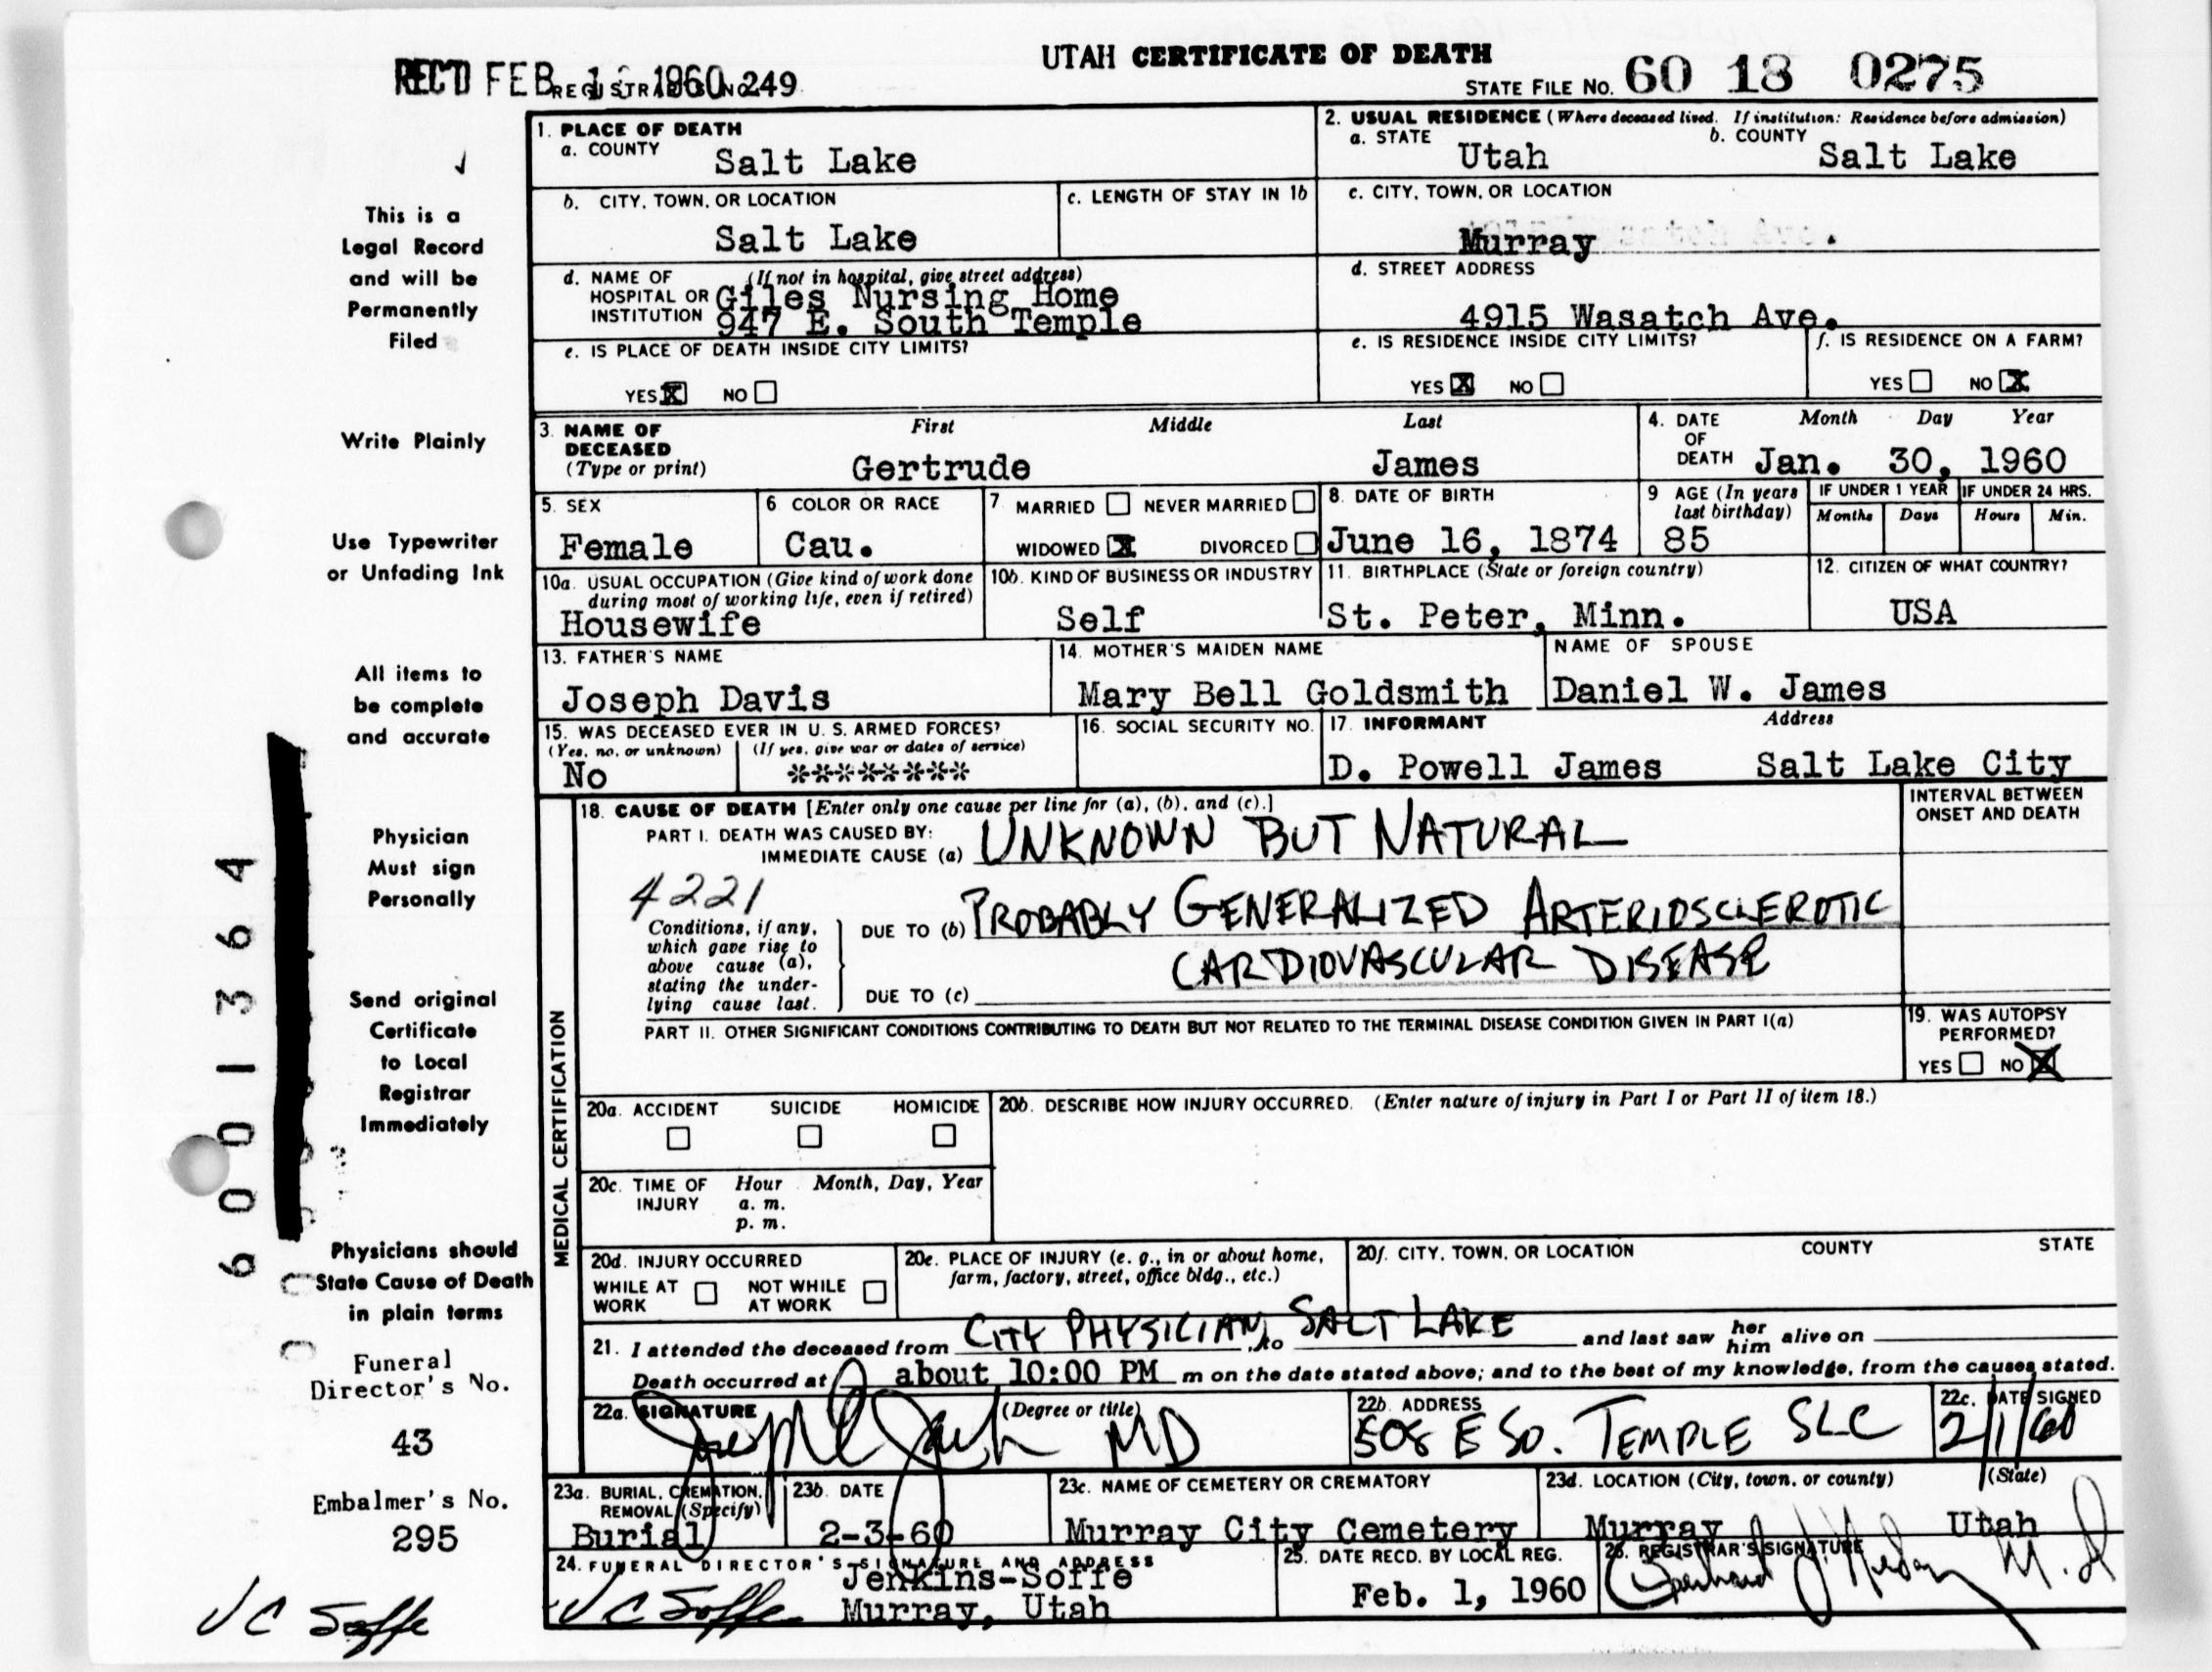 UTAH CERTIFICATE OF DEATH
REC'D FEB 1960 REGISTRAR'S NO. 249
STATE FILE NO. 60 18 0275
This is a
Legal Record
and will be
Permanently
Filed
Write Plainly
Use Typewriter
or Unfading Ink
All items to
be complete
and accurate
Physician
Must sign
Personally
Send original
Certificate
to Local
Registrar
Immediately
Physicians should
State Cause of Death
in plain terms
Funeral
Director's No.
43
Embalmer's No.
295
J C Soffe
6001364
1. PLACE OF DEATH
a. COUNTY
Salt Lake
2. USUAL RESIDENCE (Where deceased lived. If institution: Residence before admission)
a. STATE b. COUNTY
Utah Salt Lake
b. CITY, TOWN, OR LOCATION
Salt Lake
c. LENGTH OF STAY IN 1b
c. CITY, TOWN, OR LOCATION
Murray
d. NAME OF (If not in hospital, give street address)
HOSPITAL OR Giles Nursing Home
INSTITUTION 947 E. South Temple
d. STREET ADDRESS
4915 Wasatch Ave.
e. IS PLACE OF DEATH INSIDE CITY LIMITS?
YES X NO
e. IS RESIDENCE INSIDE CITY LIMITS?
YES X NO
f. IS RESIDENCE ON A FARM?
YES NO X
3. NAME OF First Middle Last
DECEASED
(Type or print) Gertrude James
4. DATE Month Day Year
OF
DEATH Jan. 30, 1960
5. SEX
Female
6 COLOR OR RACE
Cau.
7 MARRIED NEVER MARRIED
WIDOWED X DIVORCED
8. DATE OF BIRTH
June 16, 1874
9 AGE (In years
last birthday)
85
IF UNDER 1 YEAR IF UNDER 24 HRS.
Months Days Hours Min.
10a. USUAL OCCUPATION (Give kind of work done
during most of working life, even if retired)
Housewife
10b. KIND OF BUSINESS OR INDUSTRY
Self
11. BIRTHPLACE (State or foreign country)
St. Peter, Minn.
12. CITIZEN OF WHAT COUNTRY?
USA
13. FATHER'S NAME
Joseph Davis
14. MOTHER'S MAIDEN NAME
Mary Bell Goldsmith
NAME OF SPOUSE
Daniel W. James
15. WAS DECEASED EVER IN U. S. ARMED FORCES?
(Yes, no, or unknown) (If yes, give war or dates of service)
No ********
16. SOCIAL SECURITY NO.
17. INFORMANT Address
D. Powell James Salt Lake City
MEDICAL CERTIFICATION
18. CAUSE OF DEATH [Enter only one cause per line for (a), (b), and (c).]
PART I. DEATH WAS CAUSED BY:
IMMEDIATE CAUSE (a) UNKNOWN BUT NATURAL
4221
Conditions, if any,
which gave rise to
above cause (a),
stating the under-
lying cause last.
DUE TO (b) PROBABLY GENERALIZED ARTERIOSCLEROTIC
CARDIOVASCULAR DISEASE
DUE TO (c)
INTERVAL BETWEEN
ONSET AND DEATH
PART II. OTHER SIGNIFICANT CONDITIONS CONTRIBUTING TO DEATH BUT NOT RELATED TO THE TERMINAL DISEASE CONDITION GIVEN IN PART I(a)
19. WAS AUTOPSY
PERFORMED?
YES NO X
20a. ACCIDENT SUICIDE HOMICIDE
20b. DESCRIBE HOW INJURY OCCURRED. (Enter nature of injury in Part I or Part II of item 18.)
20c. TIME OF Hour Month, Day, Year
INJURY a. m.
p. m.
20d. INJURY OCCURRED
WHILE AT NOT WHILE
WORK AT WORK
20e. PLACE OF INJURY (e. g., in or about home,
farm, factory, street, office bldg., etc.)
20f. CITY, TOWN, OR LOCATION COUNTY STATE
21. I attended the deceased from CITY PHYSICIAN, to SALT LAKE and last saw her him alive on
Death occurred at about 10:00 PM m on the date stated above; and to the best of my knowledge, from the causes stated.
22a. SIGNATURE (Degree or title)
MD
22b. ADDRESS
508 E SO. TEMPLE SLC
22c. DATE SIGNED
2/1/60
23a. BURIAL, CREMATION,
REMOVAL (Specify)
Burial
23b. DATE
2-3-60
23c. NAME OF CEMETERY OR CREMATORY
Murray City Cemetery
23d. LOCATION (City, town, or county) (State)
Murray Utah
24. FUNERAL DIRECTOR'S SIGNATURE AND ADDRESS
J C Soffe Jenkins-Soffe
Murray, Utah
25. DATE RECD. BY LOCAL REG.
Feb. 1, 1960
26. REGISTRAR'S SIGNATURE
M.D